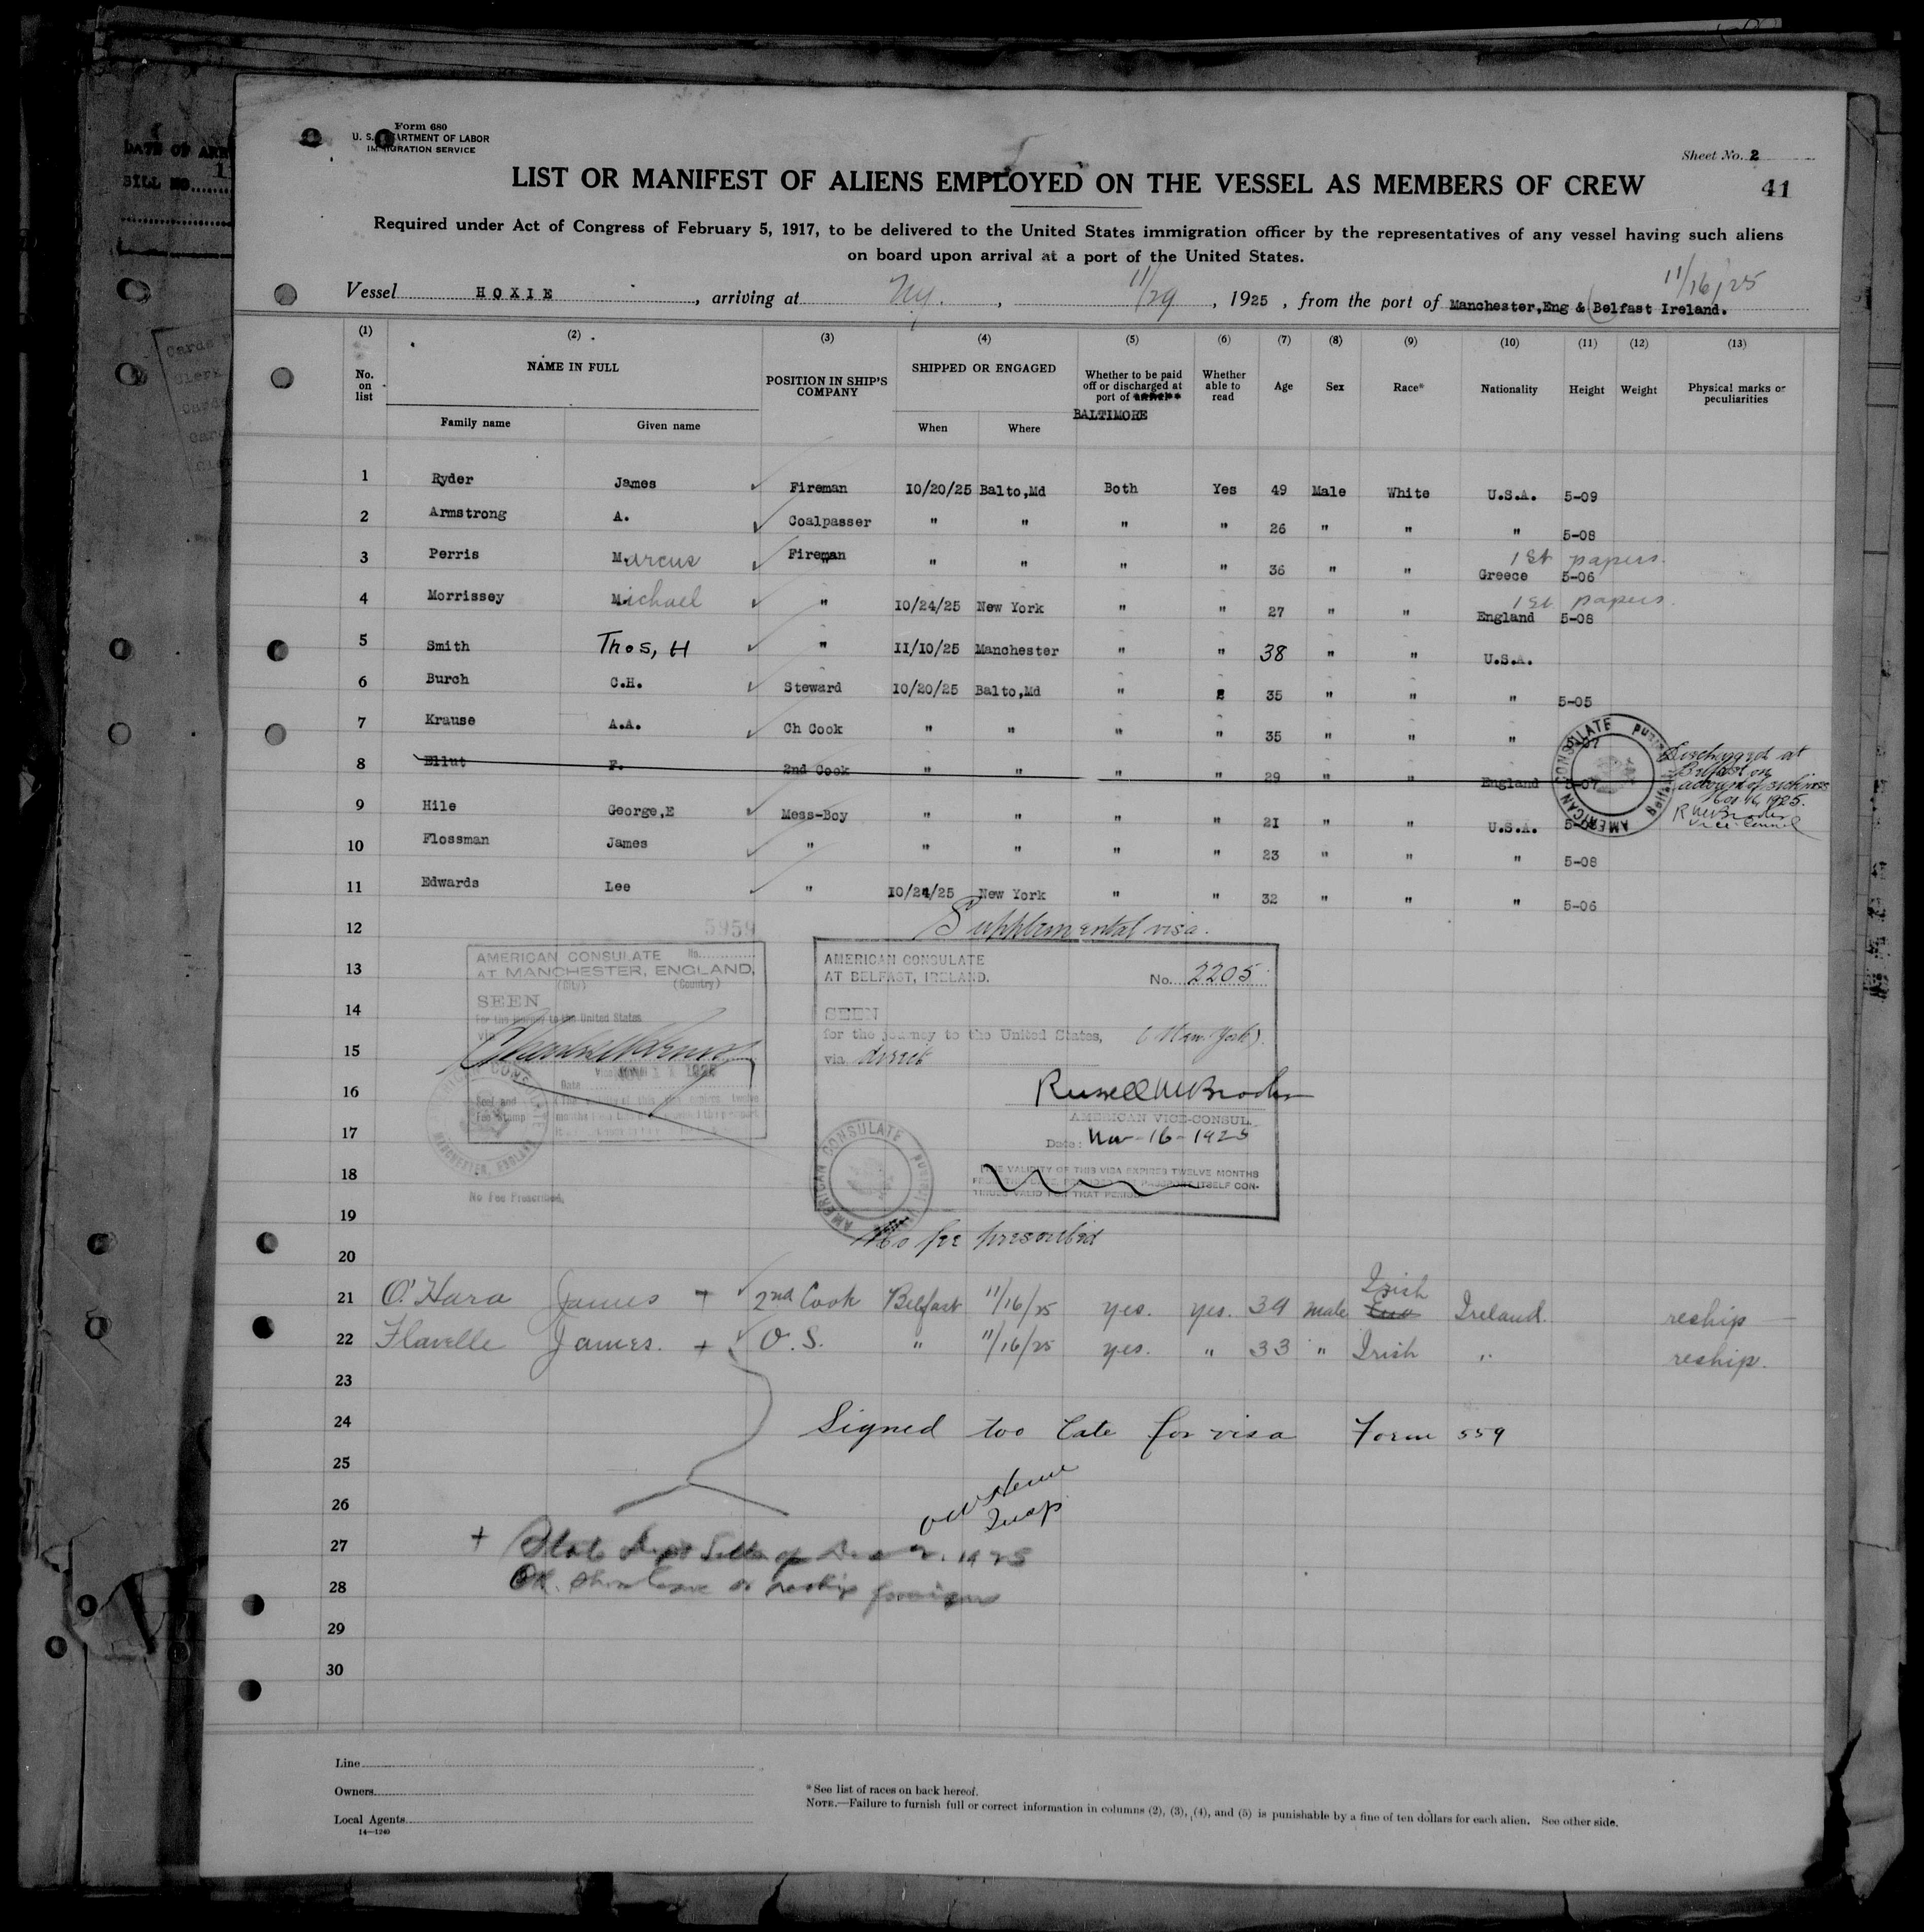 Form 680
U. S. DEPARTMENT OF LABOR
IMMIGRATION SERVICE
Sheet No. 2
LIST OR MANIFEST OF ALIENS EMPLOYED ON THE VESSEL AS MEMBERS OF CREW
41
Required under Act of Congress of February 5, 1917, to be delivered to the United States immigration officer by the representatives of any vessel having such aliens
on board upon arrival at a port of the United States.
11/16/25
Vessel HOXIE, arriving at N.Y., 11/29, 1925, from the port of Manchester,Eng & Belfast Ireland.
(1) (2) (3) (4) (5) (6) (7) (8) (9) (10) (11) (12) (13)
No. on list NAME IN FULL POSITION IN SHIP'S COMPANY SHIPPED OR ENGAGED Whether to be paid off or discharged at port of BALTIMORE Whether able to read Age Sex Race* Nationality Height Weight Physical marks or peculiarities
Family name Given name When Where
1 Ryder James Fireman 10/20/25 Balto,Md Both Yes 49 Male White U.S.A. 5-09
2 Armstrong A. Coalpasser " " " " 26 " " " 5-08
3 Perris Marcus Fireman " " " " 36 " " 1st papers. Greece 5-06
4 Morrissey Michael " 10/24/25 New York " " 27 " " 1st papers. England 5-08
5 Smith Thos, H " 11/10/25 Manchester " " 38 " " U.S.A.
6 Burch C.H. Steward 10/20/25 Balto,Md " " 35 " " " 5-05
7 Krause A.A. Ch Cook " " " " 35 " " "
8 Ellut F. 2nd Cook " " " " 29 " " England 5-07 Discharged at
Belfast on
account of sickness
Nov 16, 1925.
Vice Consul
9 Hile George,E Mess-Boy " " " " 21 " " U.S.A.
AMERICAN CONSULATE
10 Flossman James " " " " " 23 " " " 5-08
11 Edwards Lee " 10/24/25 New York " " 32 " " " 5-06
12 Supplemental visa.
5959
AMERICAN CONSULATE No.
AT MANCHESTER, ENGLAND,
(City) (Country)
SEEN
for the journey to the United States
via
Date
Seal and
Fee Stamp
No Fee Prescribed.
AMERICAN CONSULATE
AT BELFAST, IRELAND.
No. 2205
SEEN
for the journey to the United States, (New York).
via direct
Russell M Brooks
AMERICAN VICE-CONSUL
Date: Nov-16-1925
THE VALIDITY OF THIS VISA EXPIRES TWELVE MONTHS
PASSPORT ITSELF CON-
TINUES VALID FOR THAT PERIOD
AMERICAN CONSULATE
No fee prescribed
13
14
15
16
17
18
19
20
21 O'Hara James + 2nd Cook Belfast 11/16/25 yes. yes. 39 male Irish Ireland. reship
22 Flavelle James. + O.S. " 11/16/25 yes. " 33 " Irish " reship.
23
24 Signed too late for visa Form 559
25
26
Insp
27 + State Dept Letter of Dec 1925
28 OK. Shore leave or reship foreign
29
30
Line
Owners
Local Agents
14—1240
* See list of races on back hereof.
NOTE.—Failure to furnish full or correct information in columns (2), (3), (4), and (5) is punishable by a fine of ten dollars for each alien. See other side.